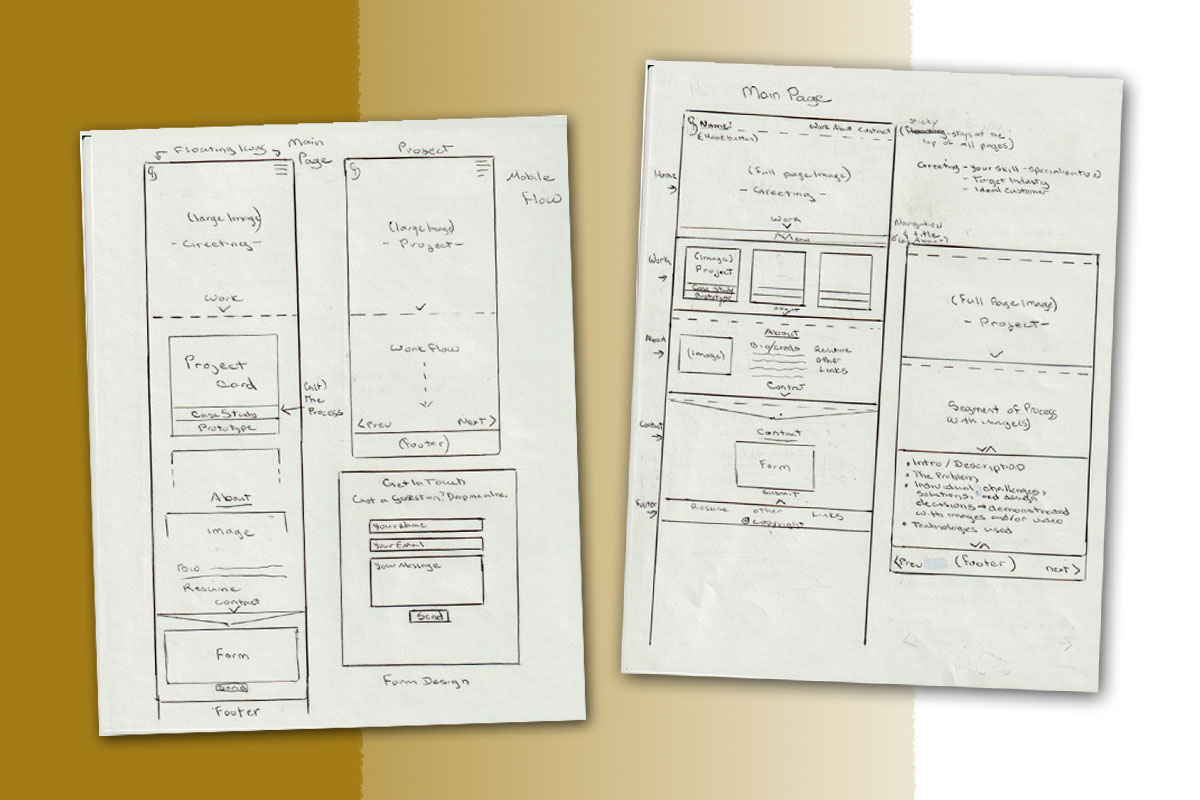 Floating Icons
Main
Page
(large Image)
- Greeting -
Work
Project
Card
Case Study
Prototype
(alt)
The
Process
About
image
Bio
Resume
contact
Form
Send
Footer
Project
Mobile
Flow
(large Image)
- Project -
Workflow
<Prev
Next>
(footer)
Get In Touch
Got a question? Drop me a line.
Your Name
Your Email
Your Message
Send
Form Design
Main Page
Name
(Home button)
Work About Contact
sticky
stays at the
top of all pages)
Home
(Full page Image)
- Greeting -
Work
Menu
Greeting - your skill -
- Target Industry
- Ideal Customer
Work
(Image)
Project
Case Study
Prototype
About
About
(Image)
Bio/creds
Resume
other
Links
Contact
Contact
Contact
Form
Submit
Footer
Resume other Links
© copyright
Navigation
& title
(Full Page Image)
- Project -
Segment of Process
with image(s)
• Intro / Description
• The Problem
• Individual challenges,
solutions, and design
decisions → demonstrated
with images and/or video
• Technologies used
<Prev (footer) next>